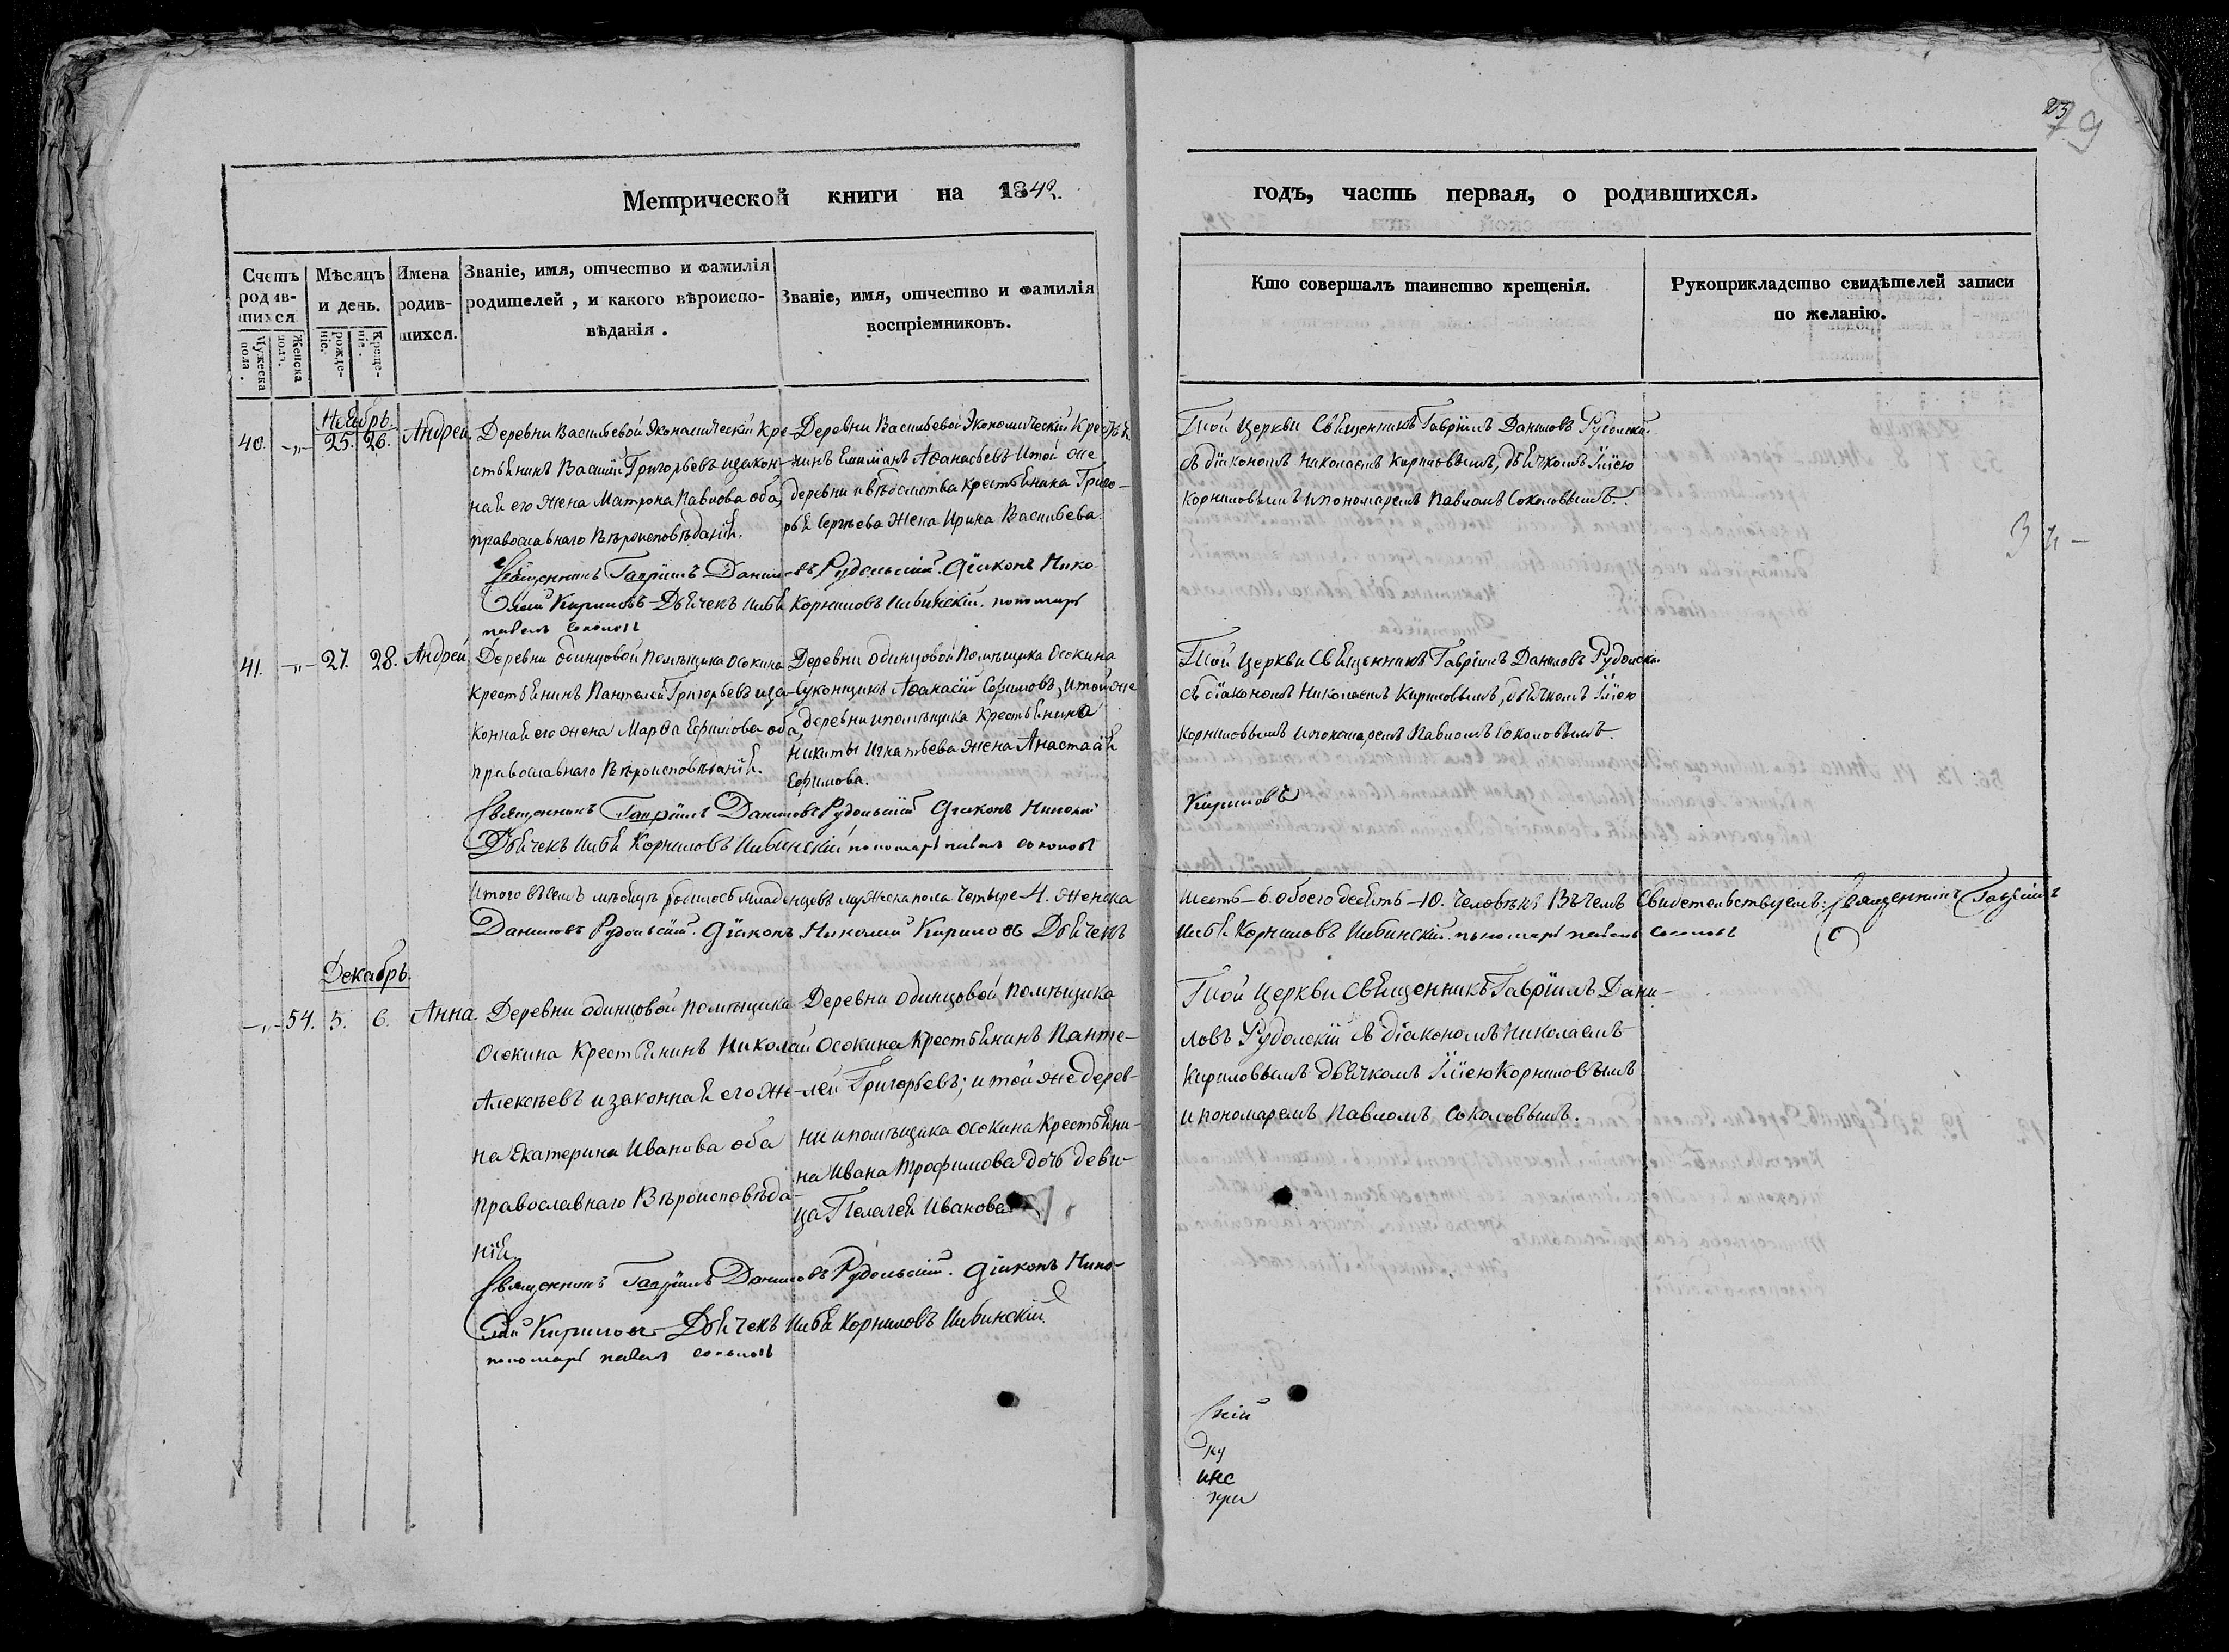 23
79
Метрической книги на 1842. годъ, часть первая, о родившихся.
Счетъ родившихся.
Мужеска пола.
Женска пола.
Мѣсяцъ и день.
рожденіе.
Крещеніе.
Имена родившихся.
Званіе, имя, отчество и фамилія
родителей, и какого вѣроиспо-
вѣданія.
Званіе, имя, отчество и фамилія
воспріемниковъ.
Кто совершалъ таинство крещенія.
Рукоприкладство свидѣтелей записи
по желанію.
Ноябрь.
40. -„- 25. 26. Андрей
Деревни Васильевой Экономическій Кре-
стьянинъ Василій Григорьевъ изакон-
ная его жена Матрона Павлова оба
православнаго Вѣроисповѣданія.
Деревни Васильевой Экономическій Крестья-
нинъ Афанасьевъ Итой же
деревни ивѣдомства крестьянина Григо-
рья Сергѣева жена Ирина Васильева.
Той Церкви Священникъ Гавріилъ Даниловъ Рудольскій
съ діакономъ Николаемъ Кириловымъ, дьячкомъ Иліею
Корниловымъ ипономаремъ Павломъ Соколовымъ.
Священникъ Гавріилъ Даниловъ Рудольскій. Діаконъ Нико-
лай Кириловъ Дьячекъ Илья Корниловъ Ивинскій. пономарь
павелъ соколовъ
41. -„- 27. 28. Андрей
Деревни одинцовой Помѣщика Осокина
крестьянинъ Пантелей Григорьевъ иза-
конная его жена Марѳа Ефимова оба
православнаго Вѣроисповѣданія.
Деревни одинцовой Помѣщика Осокина
Афанасій Ефимовъ, итой же
деревни ипомѣщика крестьянина
Никиты Игнатьева жена Анастасія
Ефимова.
Той Церкви Священникъ Гавріилъ Даниловъ Рудольскій
съ діакономъ Николаемъ Кириловымъ, дьячкомъ Иліею
Корниловымъ ипономаремъ Павломъ Соколовымъ.
Священникъ Гавріилъ Даниловъ Рудольскій Діаконъ Николай
Кириловъ
Дьячекъ Илья Корниловъ Ивинскій пономарь павелъ соколовъ
Итого всемъ мѣсяцѣ родилось младенцовъ мужеска пола четыре-4. женска
Шесть-6. обоего десять-10. человѣкъ Въ чемъ Свидетельствуемъ: Священникъ Гавріилъ
Даниловъ Рудольскій. Діаконъ Николай Кириловъ Дьячекъ
Илья Корниловъ Ивинскій. пономарь павелъ соколовъ
Декабрь.
-„- 54. 5. 6. Анна
Деревни одинцовой помѣщика
Осокина Крестьянинъ Николай
Алексѣевъ изаконная его же-
на Екатерина Иванова оба
православнаго Вѣроисповѣда-
нія.
Деревни одинцовой помѣщика
Осокина Крестьянинъ Панте-
лей Григорьевъ; итой же дерев-
ни ипомѣщика осокина Крестьяни-
на Ивана Трофимова дочь деви-
ца Пелагея Иванова
Той Церкви Священникъ Гавріилъ Дани-
ловъ Рудольскій съ діакономъ Николаемъ
Кириловымъ дьячкомъ Иліею Корниловымъ
ипономаремъ Павломъ Соколовымъ.
Священникъ Гавріилъ Даниловъ Рудольскій. Діаконъ Нико-
лай Кириловъ Дьячекъ Илья Корниловъ Ивинскій.
пономарь павелъ соколовъ